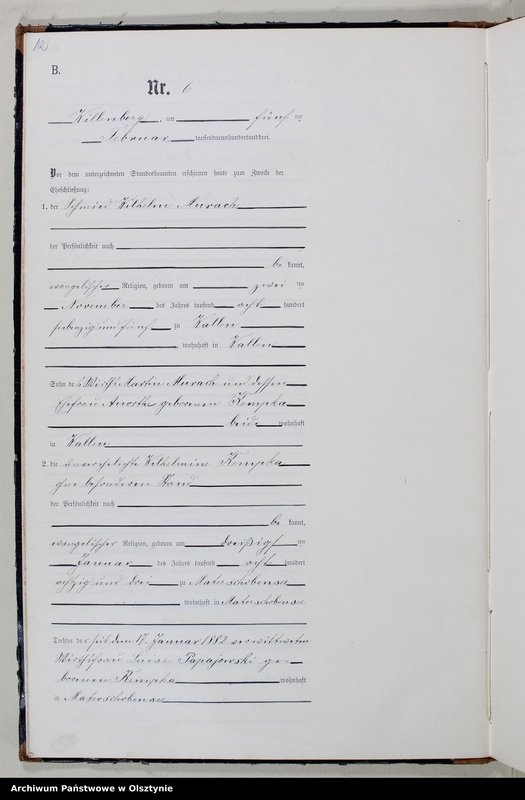 12
B.
Nr. 6
Willenberg, am fünf ten
Februar tausendneunhundertunddrei.
Vor dem unterzeichneten Standesbeamten erschienen heute zum Zwecke der
Eheschließung:
1. der Schmied Wilhelm Murach
der Persönlichkeit nach
be kannt,
evangelischer Religion, geboren am zwei ten
November des Jahres tausend acht hundert
siebenzig und fünf zu Wallen
, wohnhaft in Wallen
Sohn des Wirths Martin Murach und dessen
Ehefrau geborenen Kempka
beide wohnhaft
in Wallen
2. die unverehelichte Wilhelmine Kempka
ohne besonderen Stand
der Persönlichkeit nach
be kannt,
evangelischer Religion, geboren am dreißigsten
Januar des Jahres tausend acht hundert
achtzig und drei zu Materschobensee
, wohnhaft in Materschobensee
Tochter der seit dem 17. Januar 1882 verwittweten
Wirthsfrau Luise Papajewski ge-
borenen Kempka wohnhaft
in Materschobensee
Archiwum Państwowe w Olsztynie